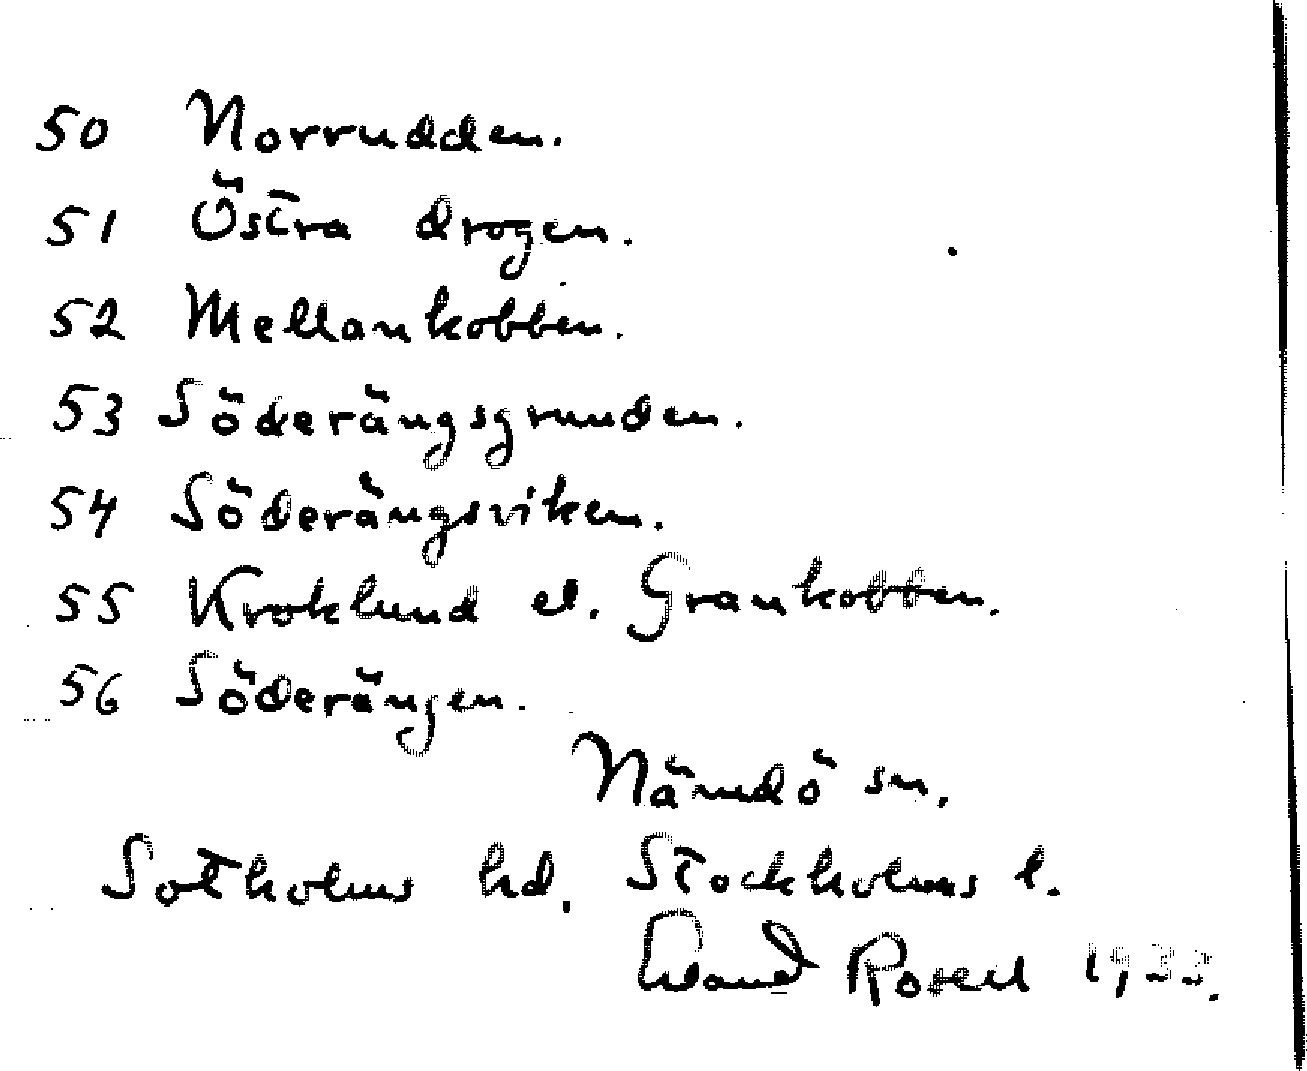 50 Norrudden.
51 Östra drogen.
52 Mellankobben.
53 Söderängsgrunden.
54 Söderängsviken.
55 Kroklund el. Grankobben.
56 Söderängen.
Nämdö sn.
Sotholms hd. Stockholms l.
Rosell 1933.